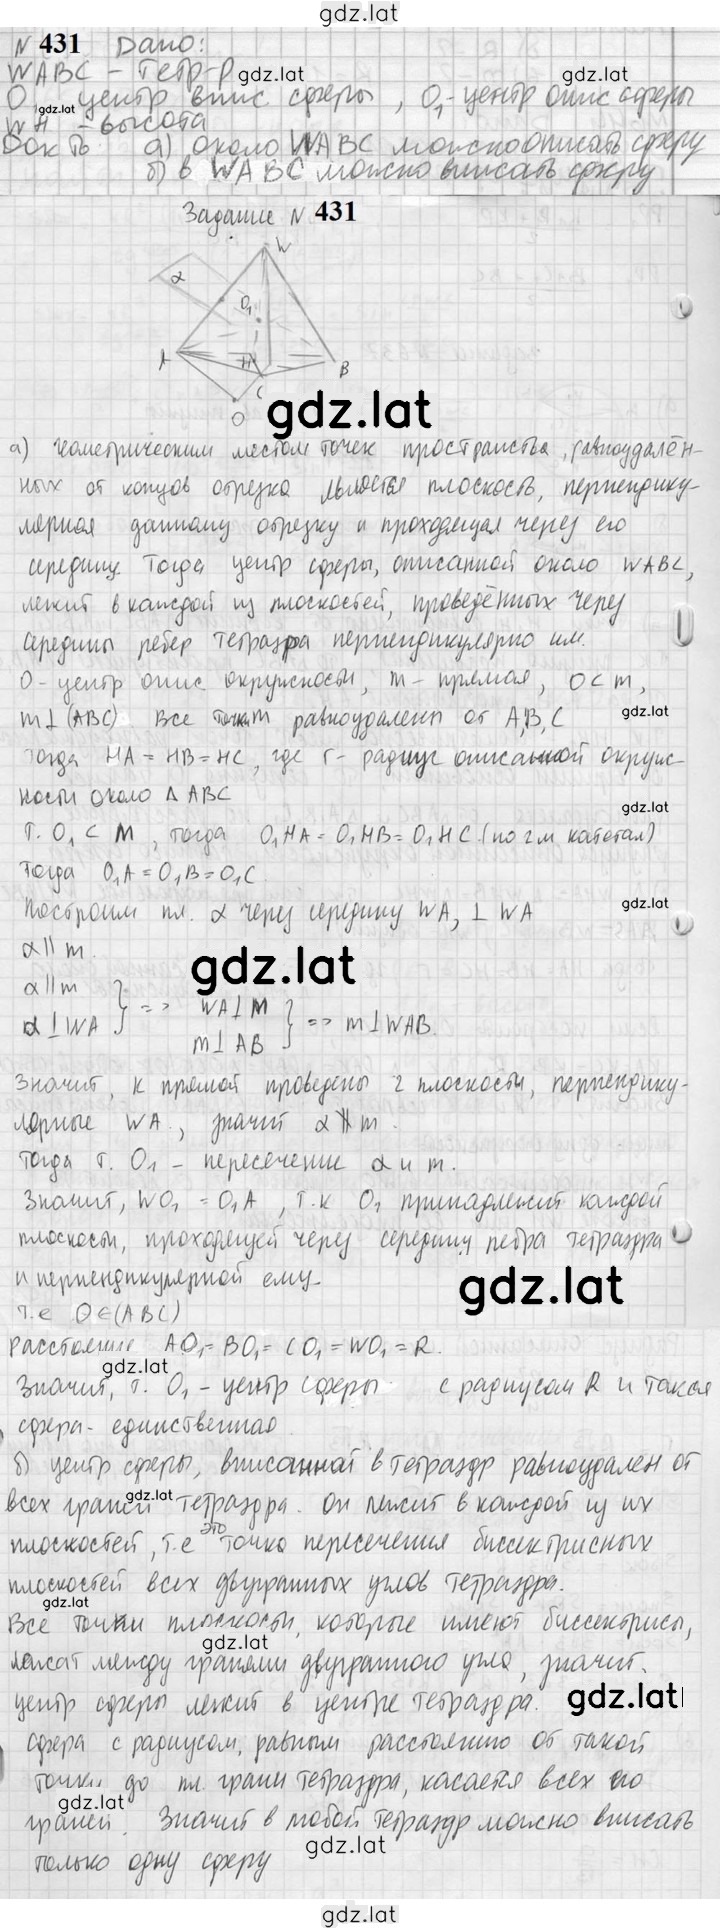 gdz.lat
N 431 Дано:
WABC - тетр-р gdz.lat gdz.lat
O - центр впис сферы, O₁-центр опис сферы
WH - высота
Док ть а) около WABC можно описать сферу
б) в WABC можно вписать сферу
Задание N 431
W
α
O₁
A
H
B
C
O
gdz.lat
а) Геометрическим местом точек пространства, равноудалён-
ных от концов отрезка является плоскость, перпендику-
лярная данному отрезку и проходящая через его
середину. Тогда центр сферы, описанной около WABC,
лежит в каждой из плоскостей, проведённых через
середины рёбер тетраэдра перпендикулярно им.
O-центр опис окружности, m-прямая, O⊂m,
m⊥(ABC) Все точки m равноудалены от A,B,C gdz.lat
Тогда HA=HB=HC, где r- радиус описанной окруж-
ности около Δ ABC
gdz.lat
Т. O₁⊂M, тогда O₁HA=O₁HB=O₁HC (по 2м катетам)
Тогда O₁A=O₁B=O₁C.
Построим пл. α через середину WA, ⊥ WA gdz.lat
α∦m.
gdz.lat
α∥m
α⊥WA } => WA⊥M
m⊥AB } => m⊥WAB.
Значит, к прямой проведены 2 плоскости, перпендику-
лярные WA, значит α∦m.
Тогда т. O₁ - пересечение α и m.
Значит, WO₁=O₁A, т.к O₁ принадлежит каждой
плоскости, проходящей через середину ребра тетраэдра
и перпендикулярной ему. gdz.lat
т.е O∈(ABC)
расстояние AO₁=BO₁=CO₁=WO₁=R.
gdz.lat
Значит, т. O₁ - центр сферы с радиусом R и такая
сфера- единственная.
б) центр сферы, вписанной в тетраэдр равноудален от
всех граней тетраэдра. Он лежит в каждой из их
gdz.lat
плоскостей, т.е это точка пересечения биссектрисных
плоскостей всех двугранных углов тетраэдра.
gdz.lat
Все точки плоскости, которые имеют биссектрисы,
gdz.lat
лежат между гранями двугранного угла, значит
центр сферы лежит в центре тетраэдра. gdz.lat
сфера с радиусом, равным расстоянию от такой
точки до пл. грани тетраэдра, касается всех его
gdz.lat
граней. Значит в любой тетраэдр можно вписать
только одну сферу gdz.lat
gdz.lat